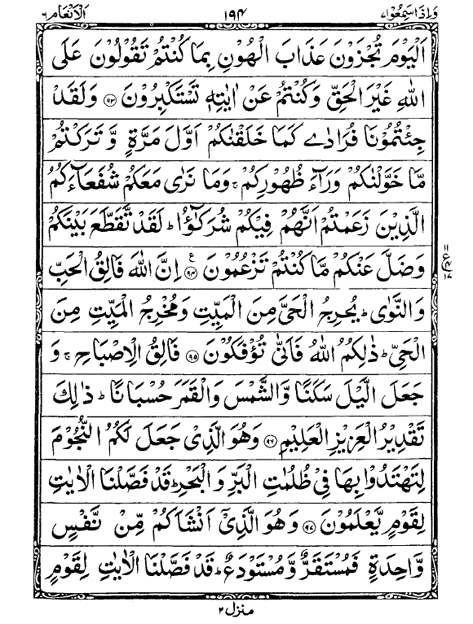 وَاِذَا سَمِعُوْا٧ ١٩٤ الْاَنْعَام٦
اَلْيَوْمَ تُجْزَوْنَ عَذَابَ الْهُوْنِ بِمَا كُنْتُمْ تَقُوْلُوْنَ عَلَى
اللّٰهِ غَيْرَ الْحَقِّ وَكُنْتُمْ عَنْ اٰيٰتِهٖ تَسْتَكْبِرُوْنَ ﴿٩٣﴾ وَلَقَدْ
جِئْتُمُوْنَا فُرَادٰى كَمَا خَلَقْنٰكُمْ اَوَّلَ مَرَّةٍ وَّ تَرَكْتُمْ
مَّا خَوَّلْنٰكُمْ وَرَآءَ ظُهُوْرِكُمْ ۚ وَمَا نَرٰى مَعَكُمْ شُفَعَآءَكُمُ
الَّذِيْنَ زَعَمْتُمْ اَنَّهُمْ فِيْكُمْ شُرَكٰٓؤُا ؕ لَقَدْ تَّقَطَّعَ بَيْنَكُمْ
وَضَلَّ عَنْكُمْ مَّا كُنْتُمْ تَزْعُمُوْنَ ﴿٩٤﴾ ع اِنَّ اللّٰهَ فَالِقُ الْحَبِّ
وَالنَّوٰى ؕ يُخْرِجُ الْحَيَّ مِنَ الْمَيِّتِ وَمُخْرِجُ الْمَيِّتِ مِنَ
الْحَيِّ ؕ ذٰلِكُمُ اللّٰهُ فَاَنّٰى تُؤْفَكُوْنَ ﴿٩٥﴾ فَالِقُ الْاِصْبَاحِ ۚ وَ
جَعَلَ الَّيْلَ سَكَنًا وَّالشَّمْسَ وَالْقَمَرَ حُسْبَانًا ؕ ذٰلِكَ
تَقْدِيْرُ الْعَزِيْزِ الْعَلِيْمِ ﴿٩٦﴾ وَهُوَ الَّذِيْ جَعَلَ لَكُمُ النُّجُوْمَ
لِتَهْتَدُوْا بِهَا فِيْ ظُلُمٰتِ الْبَرِّ وَالْبَحْرِ ؕ قَدْ فَصَّلْنَا الْاٰيٰتِ
لِقَوْمٍ يَّعْلَمُوْنَ ﴿٩٧﴾ وَهُوَ الَّذِيْٓ اَنْشَاَكُمْ مِّنْ نَّفْسٍ
وَّاحِدَةٍ فَمُسْتَقَرٌّ وَّمُسْتَوْدَعٌ ؕ قَدْ فَصَّلْنَا الْاٰيٰتِ لِقَوْمٍ
منزل ٢